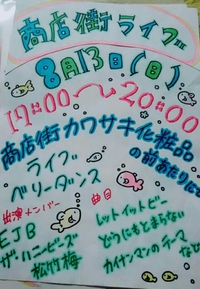 商店街ライブ
8月13日(日)
17:00〜20:00
商店街カワサキ化粧品
の前あたりにて
ライブ
ベリーダンス
出演メンバー
EJB
ザ・ハニービーズ
松竹梅
曲目
レットイットビー
どうにもとまらない
カイナンマンのテーマ
など